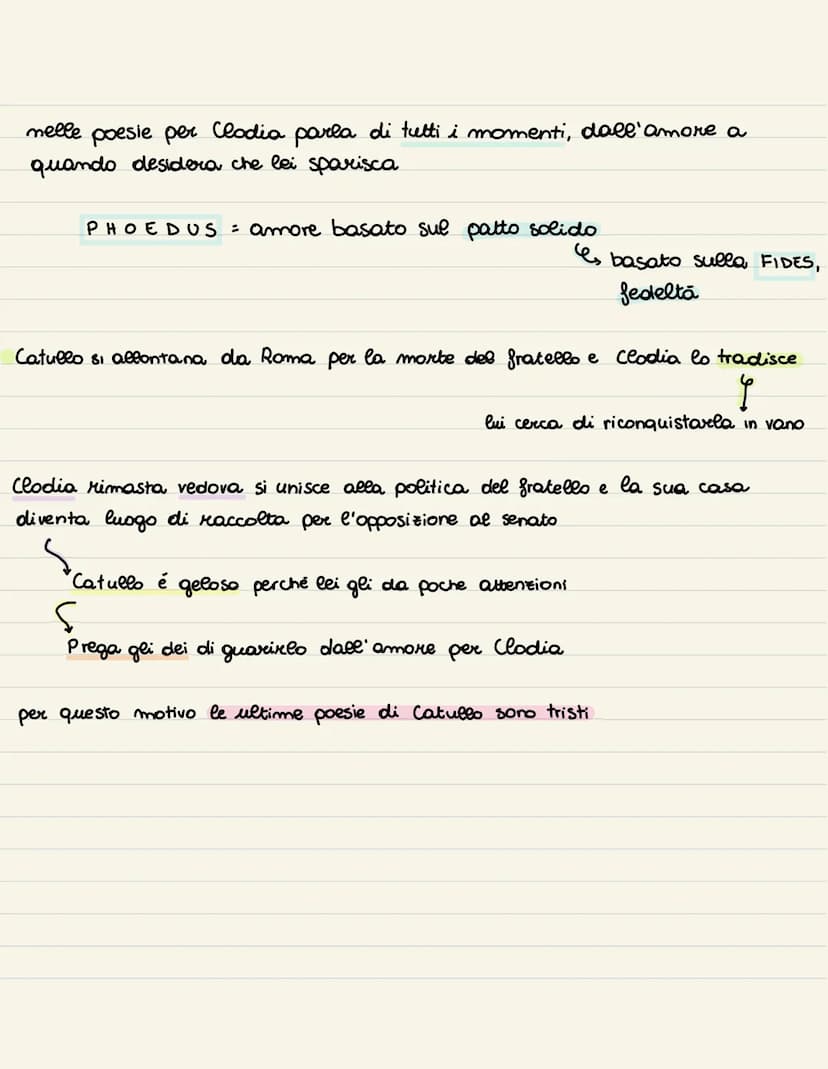 nelle poesie per Clodia parla di tutti i momenti, dall'amore a
quando desidera che lei sparisca
PHOEDUS = amore basato sul patto solido
basato sulla FIDES,
fedeltà
Catullo si allontana da Roma per la morte del fratello e Clodia lo tradisce
lui cerca di riconquistarla in vano
Clodia rimasta vedova si unisce alla politica del fratello e la sua casa
diventa luogo di raccolta per l'opposizione al senato
Catullo é geloso perché lei gli da poche attenzioni
Prega gli dei di guarirlo dall'amore per Clodia
per questo motivo le ultime poesie di Catullo sono tristi